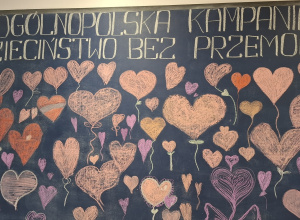 OGÓLNOPOLSKA KAMPANI
ZIECIŃSTWO BEZ PRZEMO